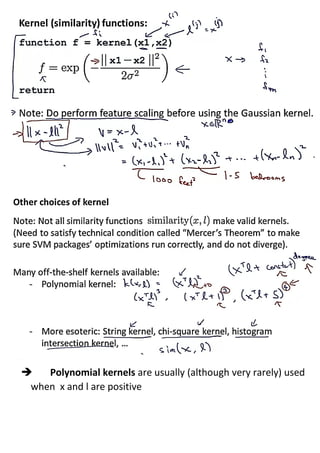 Kernel (similarity) functions:
x⁽ⁱ⁾
f_i
l⁽ʲ⁾ = x⁽ʲ⁾
function f = kernel(x1,x2)
f = exp(−||x1−x2||² / 2σ²)
x → f₁
f₂
⋮
f_m
return
Note: Do perform feature scaling before using the Gaussian kernel.
→ ||x - l||²
v = x - l
x∈ℝⁿ
||v||² = v₁² + v₂² + ... + v_n²
= (x₁-l₁)² + (x₂-l₂)² + ... + (x_n-l_n)²
1000 feet²
1-5 bedrooms
Other choices of kernel
Note: Not all similarity functions similarity(x, l) make valid kernels.
(Need to satisfy technical condition called “Mercer’s Theorem” to make
sure SVM packages’ optimizations run correctly, and do not diverge).
Many off-the-shelf kernels available:
(xᵀl + constant)^degree
- Polynomial kernel: k(x,l) = (xᵀl)²
(xᵀl)³, (xᵀl+1)³, (xᵀl+5)⁴
- More esoteric: String kernel, chi-square kernel, histogram
intersection kernel, …
sim(x, l)
➔ Polynomial kernels are usually (although very rarely) used
when x and l are positive